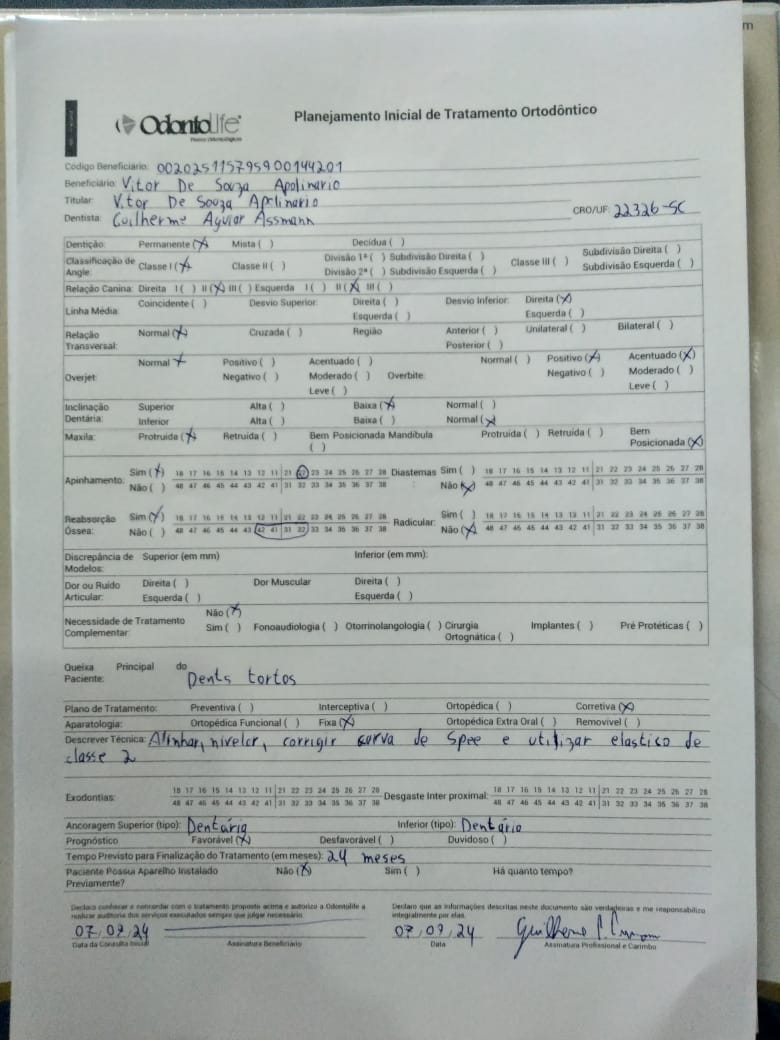 OdontoLife
Planejamento Inicial de Tratamento Ortodôntico
Código Beneficiário: 002025115795900144201
Beneficiário: Vitor De Souza Apolinario
Titular: Vitor De Souza Apolinario
Dentista: Guilherme Aguiar Assmann CRO/UF: 22326-SC
Dentição: Permanente (X) Mista ( ) Decídua ( )
Classificação de Angle: Classe I (X) Classe II ( ) Divisão 1ª ( ) Subdivisão Direita ( ) Classe III ( ) Subdivisão Direita ( )
Divisão 2ª ( ) Subdivisão Esquerda ( ) Subdivisão Esquerda ( )
Relação Canina: Direita I ( ) II (X) III ( ) Esquerda I ( ) II (X) III ( )
Linha Média: Coincidente ( ) Desvio Superior: Direita ( ) Desvio Inferior: Direita (X)
Esquerda ( ) Esquerda ( )
Relação Transversal: Normal (X) Cruzada ( ) Região Anterior ( ) Unilateral ( ) Bilateral ( )
Posterior ( )
Overjet: Normal X Positivo ( ) Acentuado ( ) Overbite: Normal ( ) Positivo (X) Acentuado (X)
Negativo ( ) Moderado ( ) Negativo ( ) Moderado ( )
Leve ( ) Leve ( )
Inclinação Dentária: Superior Alta ( ) Baixa (X) Normal ( )
Inferior Alta ( ) Baixa ( ) Normal (X)
Maxila: Protruída (X) Retruída ( ) Bem Posicionada ( ) Mandíbula Protruída ( ) Retruída ( ) Bem Posicionada (X)
Apinhamento: Sim (X) 18 17 16 15 14 13 12 11 21 22 23 24 25 26 27 28 Diastemas: Sim ( ) 18 17 16 15 14 13 12 11 21 22 23 24 25 26 27 28
Não ( ) 48 47 46 45 44 43 42 41 31 32 33 34 35 36 37 38 Não (X) 48 47 46 45 44 43 42 41 31 32 33 34 35 36 37 38
Reabsorção Óssea: Sim (X) 18 17 16 15 14 13 12 11 21 22 23 24 25 26 27 28 Radicular: Sim ( ) 18 17 16 15 14 13 12 11 21 22 23 24 25 26 27 28
Não ( ) 48 47 46 45 44 43 42 41 31 32 33 34 35 36 37 38 Não (X) 48 47 46 45 44 43 42 41 31 32 33 34 35 36 37 38
Discrepância de Modelos: Superior (em mm) Inferior (em mm):
Dor ou Ruído Articular: Direita ( ) Dor Muscular Direita ( )
Esquerda ( ) Esquerda ( )
Necessidade de Tratamento Complementar: Não (X)
Sim ( ) Fonoaudiologia ( ) Otorrinolangologia ( ) Cirurgia Ortognática ( ) Implantes ( ) Pré Protéticas ( )
Queixa Principal do Paciente: Dents tortos
Plano de Tratamento: Preventiva ( ) Interceptiva ( ) Ortopédica ( ) Corretiva (X)
Aparatologia: Ortopédica Funcional ( ) Fixa (X) Ortopédica Extra Oral ( ) Removível ( )
Descrever Técnica: Alinhar, nivelar, corrigir curva de Spee e utilizar elastico de
classe 2
Exodontias: 18 17 16 15 14 13 12 11 21 22 23 24 25 26 27 28 Desgaste Inter proximal: 18 17 16 15 14 13 12 11 21 22 23 24 25 26 27 28
48 47 46 45 44 43 42 41 31 32 33 34 35 36 37 38 48 47 46 45 44 43 42 41 31 32 33 34 35 36 37 38
Ancoragem Superior (tipo): Dentária Inferior (tipo): Dentário
Prognóstico Favorável (X) Desfavorável ( ) Duvidoso ( )
Tempo Previsto para Finalização do Tratamento (em meses): 24 meses
Paciente Possui Aparelho Instalado Previamente? Não (X) Sim ( ) Há quanto tempo?
Declaro conhecer e concordar com o tratamento proposto acima e autorizo a Odontolife a
realizar auditoria dos serviços executados sempre que julgar necessário.
Declaro que as informações descritas neste documento são verdadeiras e me responsabilizo
integralmente por elas.
07,09,24 07,09,24
Data da Consulta Inicial Assinatura Beneficiário Data Assinatura Profissional e Carimbo